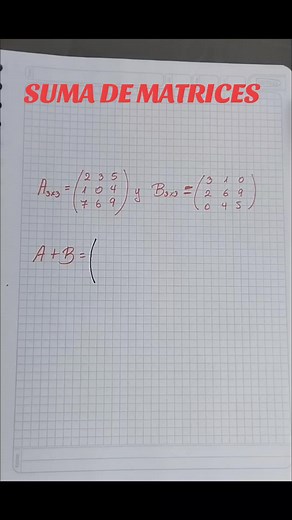 SUMA DE MATRICES
A3x3 = (2 3 5
1 0 4
7 6 9) y B3x3 = (3 1 0
2 6 9
0 4 5)
A + B = (